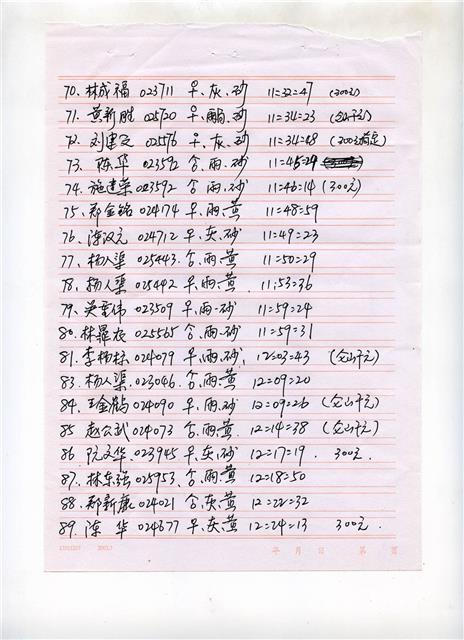 70. 林成福 023711 早、灰、砂 11=32=47 (300元)
71. 黄新胜 025720 早、雨、砂 11=34=23
72. 刘建文 025576 早、灰、砂 11=34=48
73. 陈华 023592 含、雨、砂 11=45=29
74. 施建荣 023592 含、雨、砂 11=46=14 (300元)
75. 郑金铭 024174 早、雨、黄 11=48=59
76. 陈汉元 024712 早、灰、砂 11=49=23
77. 杨人渠 025443 含、雨、黄 11=50=29
78. 杨人渠 025442 早、雨、黄 11:53=36
79. 吴荣伟 023509 早、雨、砂 11=59=24
80. 林 025565 含、雨、砂 11=59=31
81. 李杨标 024079 早、雨、砂 12=03=43
83. 杨人渠 023046 含、雨、黄 12=09=20
84. 王金鹊 024090 早、雨、砂 12=09=26
85 赵公武 024073 含、雨、黄 12=14=38
86 阮文华 023945 早、灰、砂 12=17=19. 300元.
87. 林东强 025953 含、雨、黄 12=18=50
88. 郑新康 024021 含、灰、黄 12=22=32
89. 陈华 024677 早、灰、黄 12=24=13 300元.
年 月 日 第 页